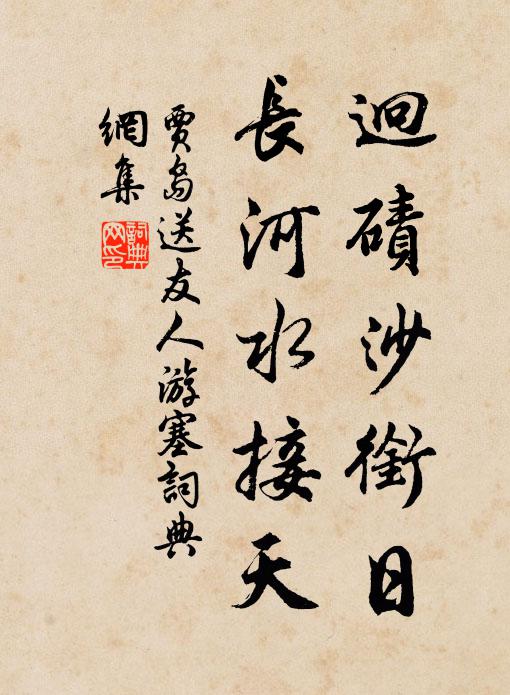 迥磧沙銜日
長河水接天
賈島送友人游塞詞典
網集
詞典網印